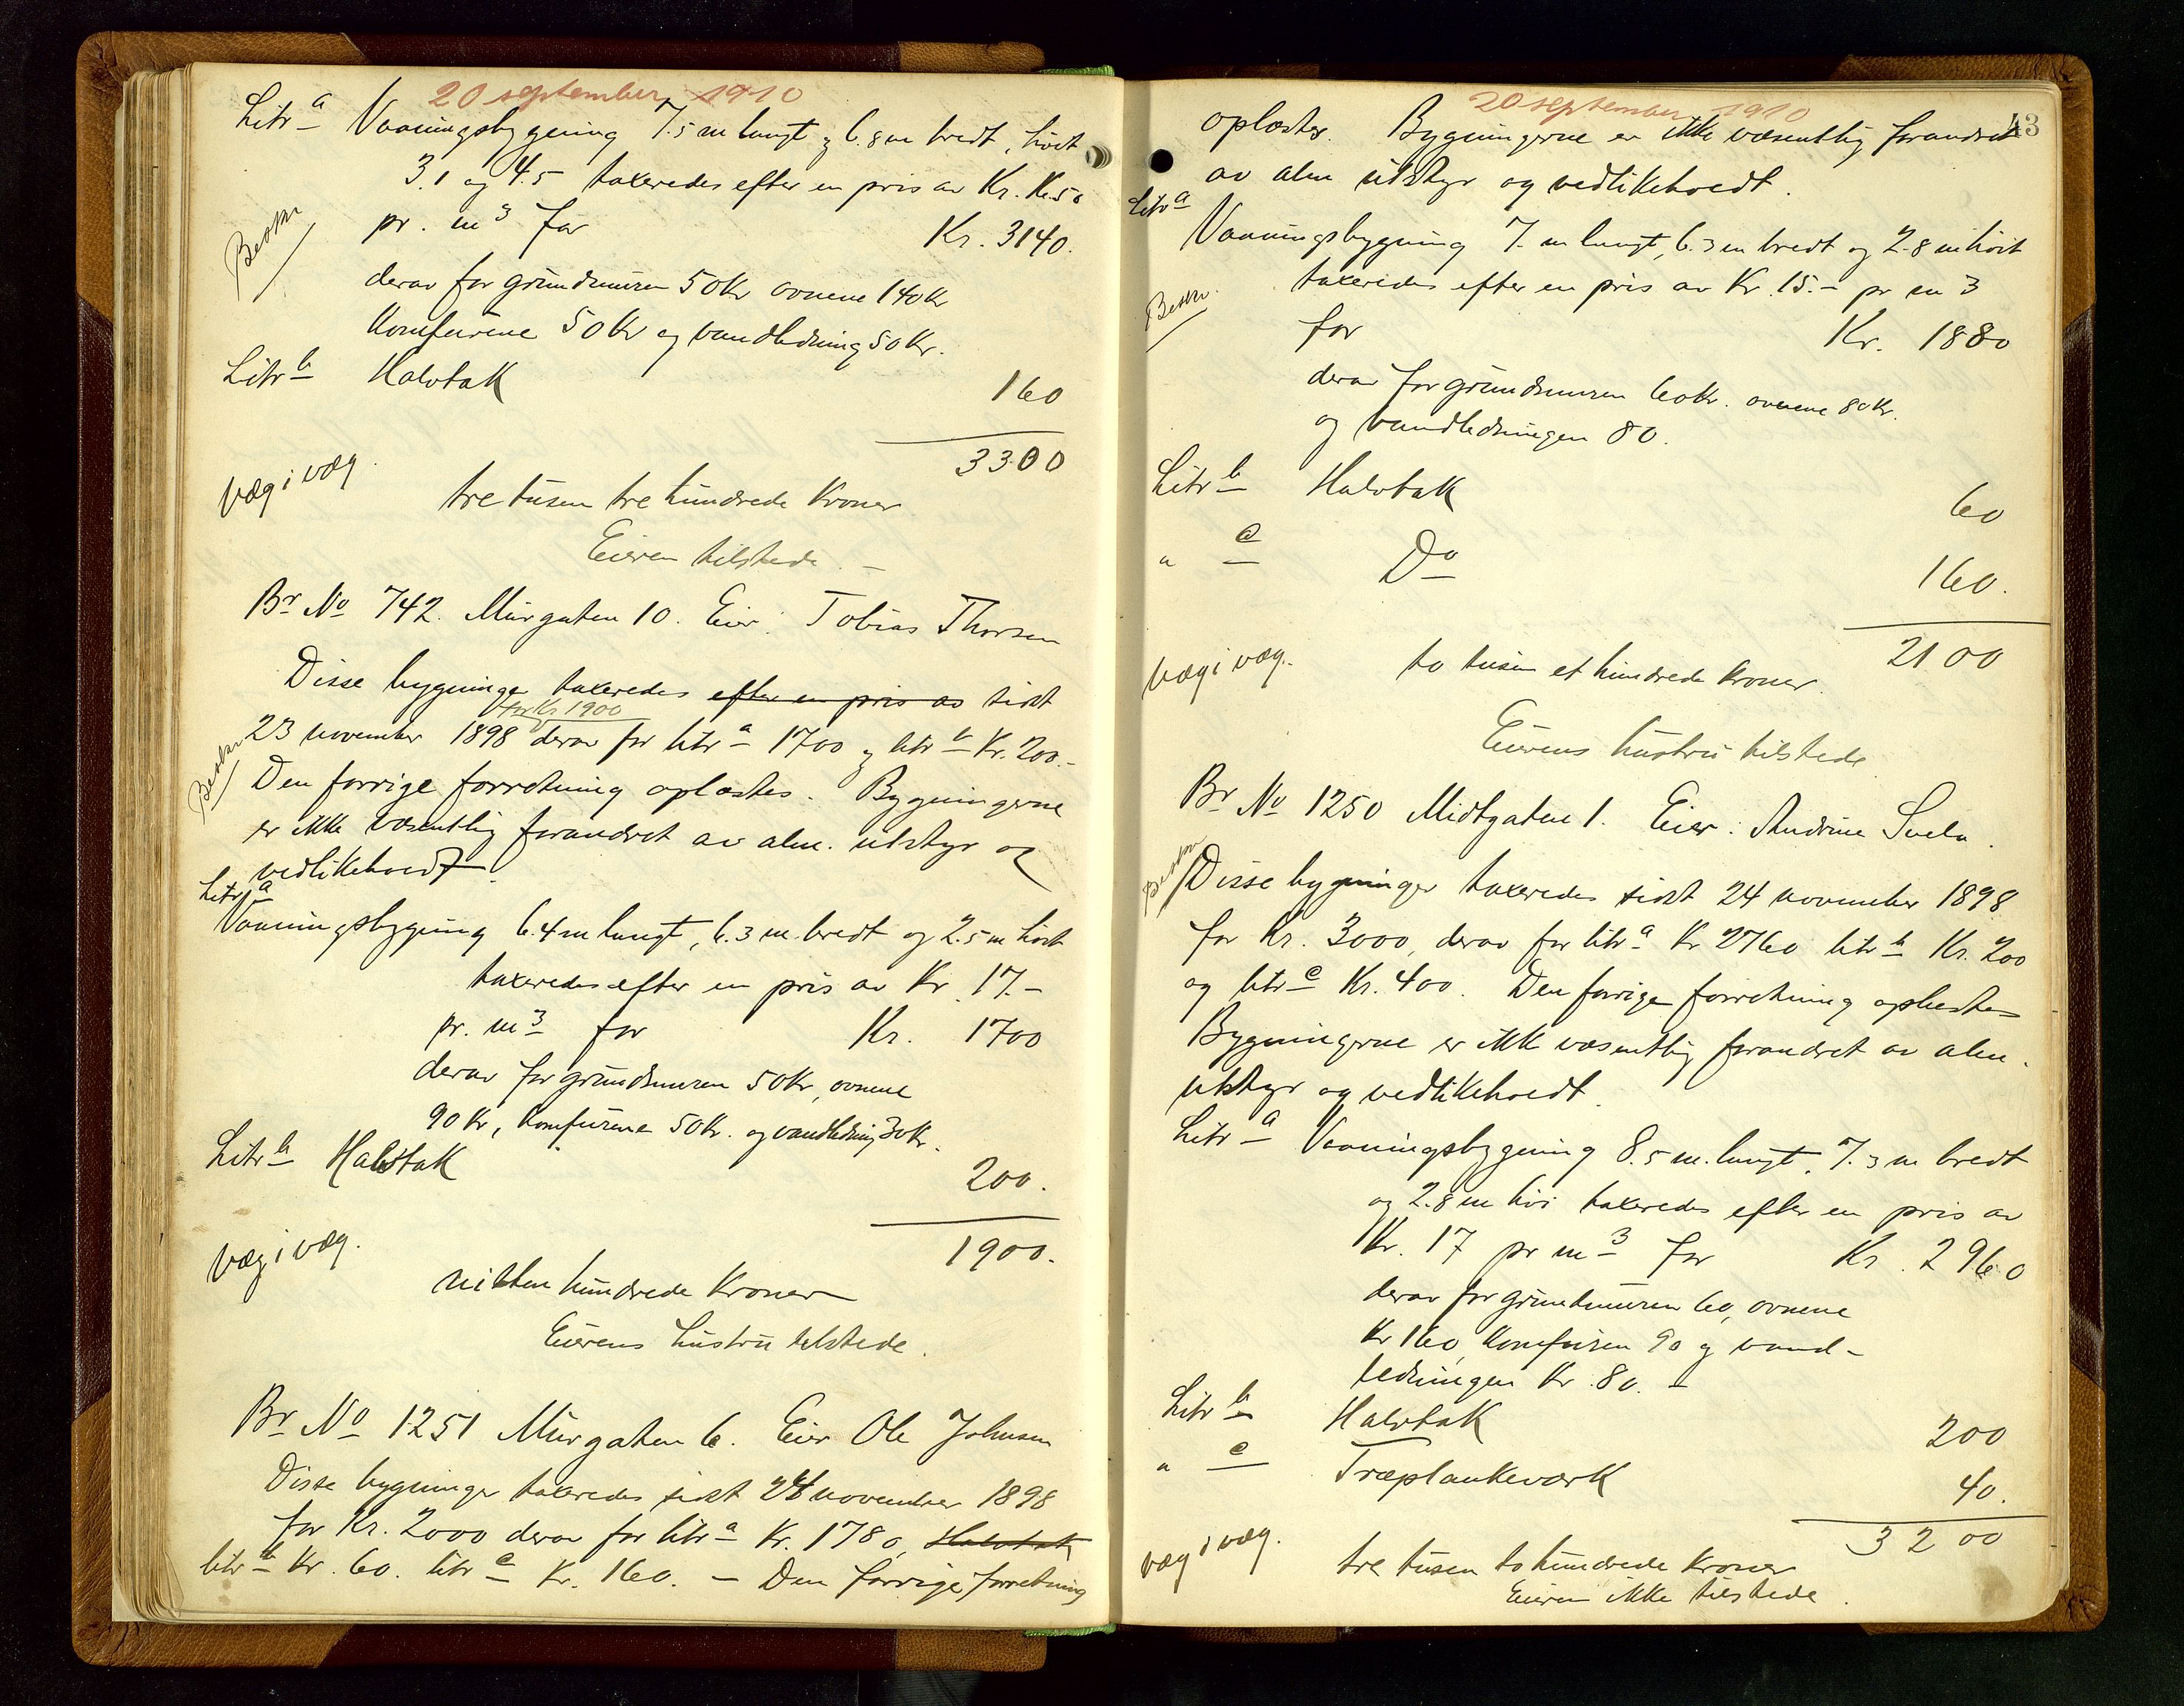 20 september 1910
Litr a Vaaningsbygning 7.5 m langt og 6.8 m bredt, høit
3.1 og 4.5 taxeredes efter en pris av Kr.
pr. m3 for Kr. 3140.
derav for grundmuren 50 Kr ovnene 140 Kr
Komfurene 50 Kr og vandledning 50 Kr.
Litr b Halvtak 160
3300
Væg i væg. tre tusen tre hundrede Kroner
Eieren tilstede. –
Br No 742. Murgaten 10. Eier: Tobias Thorsen
Disse bygninger taxeredes efter en pris av sidst
for Kr 1900
23 november 1898 derav for litr a 1700 og litr b Kr. 200.–
Den forrige forretning oplæstes. Bygningerne
er ikke væsentlig forandret av alm. utstyr og
vedlikeholdt
Litr a
Vaaningsbygning 6.4 m langt, 6.3 m. bredt og 2.5 m høit
taxeredes efter en pris av Kr. 17.–
pr. m3 for Kr. 1700
derav for grundmuren 50 Kr, ovnene
90 Kr, komfurene 50 Kr. og vandledning 30 Kr.
Litr b Halvtak 200.
1900.
Væg i væg.
nitten hundrede Kroner
Eierens hustru tilstede.
Br No 1251 Murgaten 6. Eier Ole Johnsen
Disse bygninger taxeredes sidst 24 november 1898
for Kr. 2000 derav for litr a Kr. 1780, Halvtak
litr b Kr. 60. litr c Kr. 160. – Den forrige forretning
20 september 1910
43
oplæstes. Bygningerne er ikke væsentlig forandret
av alm utstyr og vedlikeholdt.
Litr a
Vaaningsbygning 7. m langt, 6.3 m bredt og 2.8 m høit
taxeredes efter en pris av Kr. 15.– pr m 3
for Kr. 1880
derav for grundmuren 60 Kr. ovnene 80 Kr.
og vandledningen 80.
Litr b Halvtak 60
" c Do 160.
2100
Væg i væg. to tusen et hundrede Kroner.
Eierens hustru tilstede.
Br No 1250 Midtgaten 1. Eier: Andrine
Disse bygninger taxeredes sidst 24 november 1898
for Kr. 3000, derav for litr a Kr 2760 litr b Kr. 200
og litr c Kr. 400. Den forrige forretning oplæstes
Bygningerne er ikke væsentlig forandret av alm.
utstyr og vedlikeholdt.
Litr a Vaaningsbygning 8.5 m. langt, 7.3 m bredt
og 2.8 m høi taxeredes efter en pris av
Kr. 17 pr m 3 for Kr. 2960
derav for grundmuren 60, ovnene
Kr 160, Komfuren 90 og vand-
ledningen Kr. 80. –
Litr b Halvtak 200
" c Træplankeværk 40.
3200
væg i væg. tre tusen to hundrede Kroner
Eieren ikke tilstede.